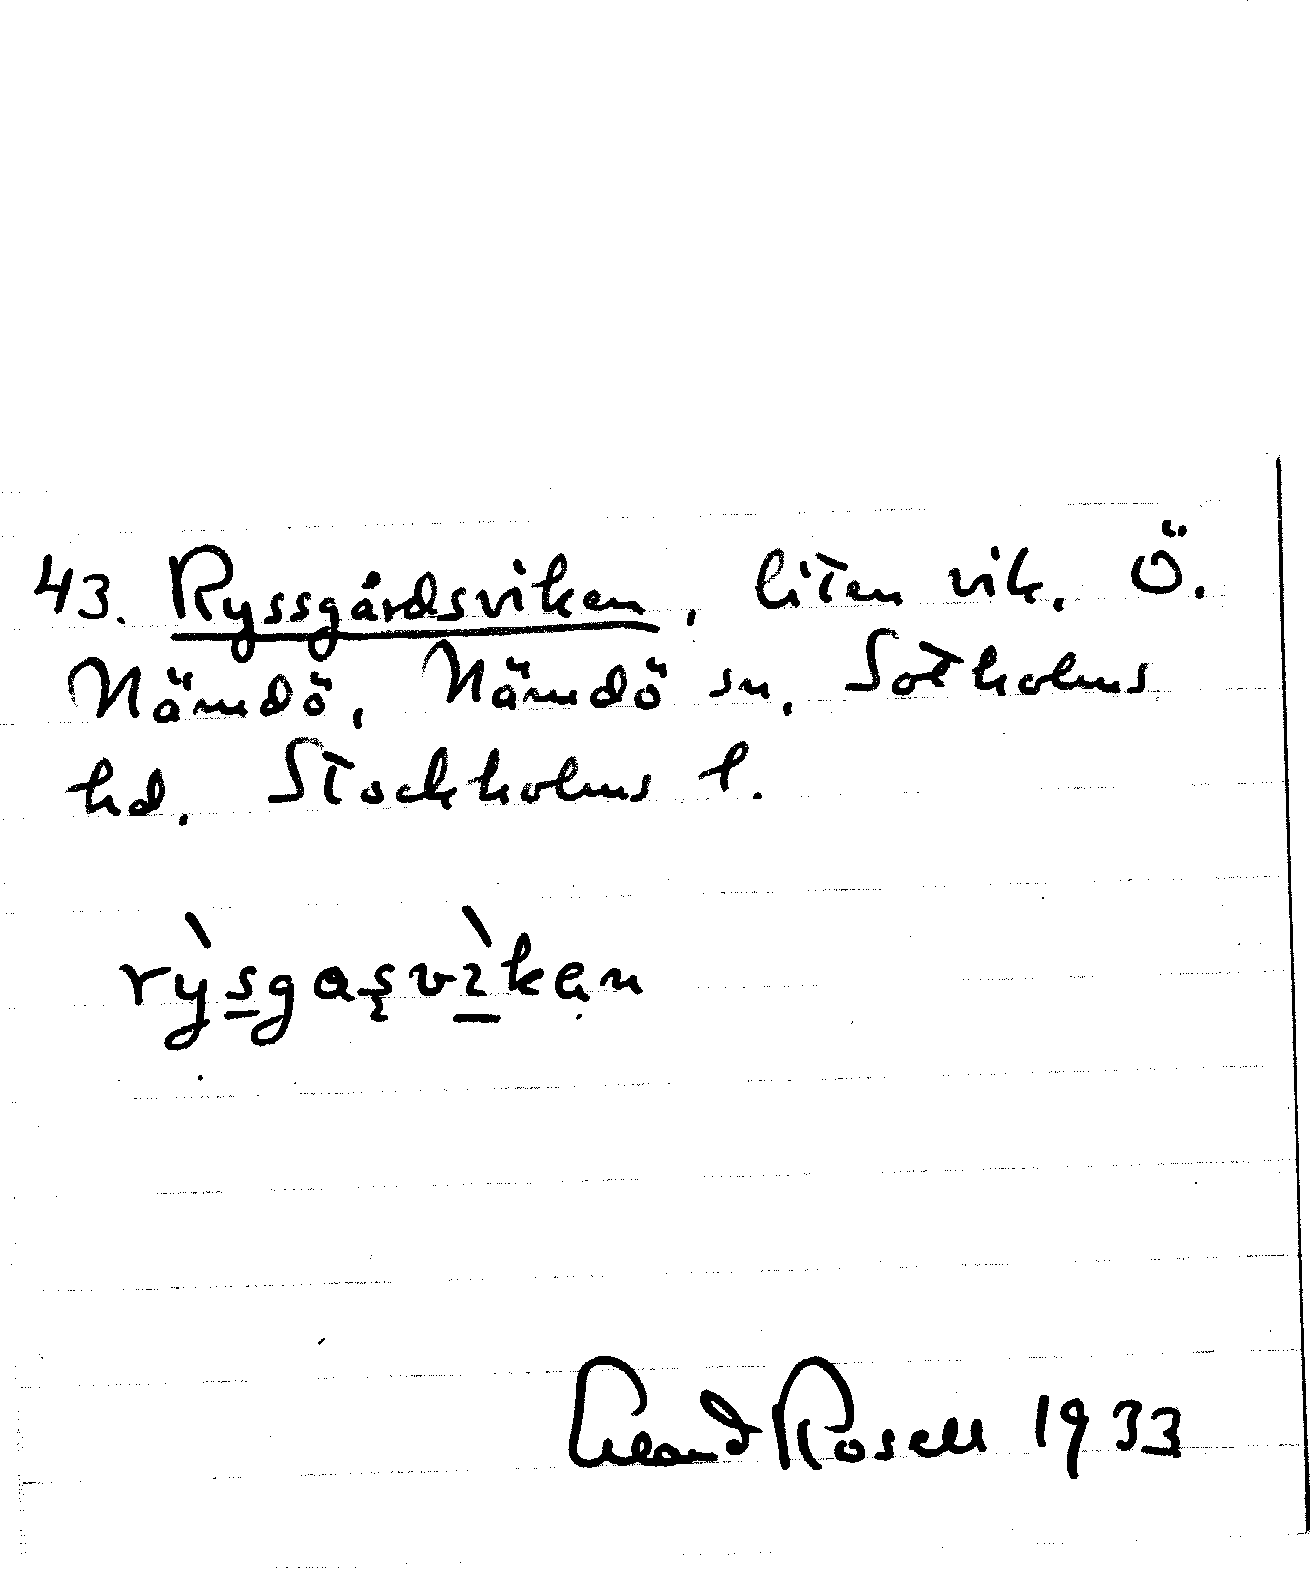 43. Ryssgårdsviken, liten vik. Ö.
Nämdö, Nämdö sn, Sotholms
hd. Stockholms l.
rỳsgaşvìkąn
Rosell 1933